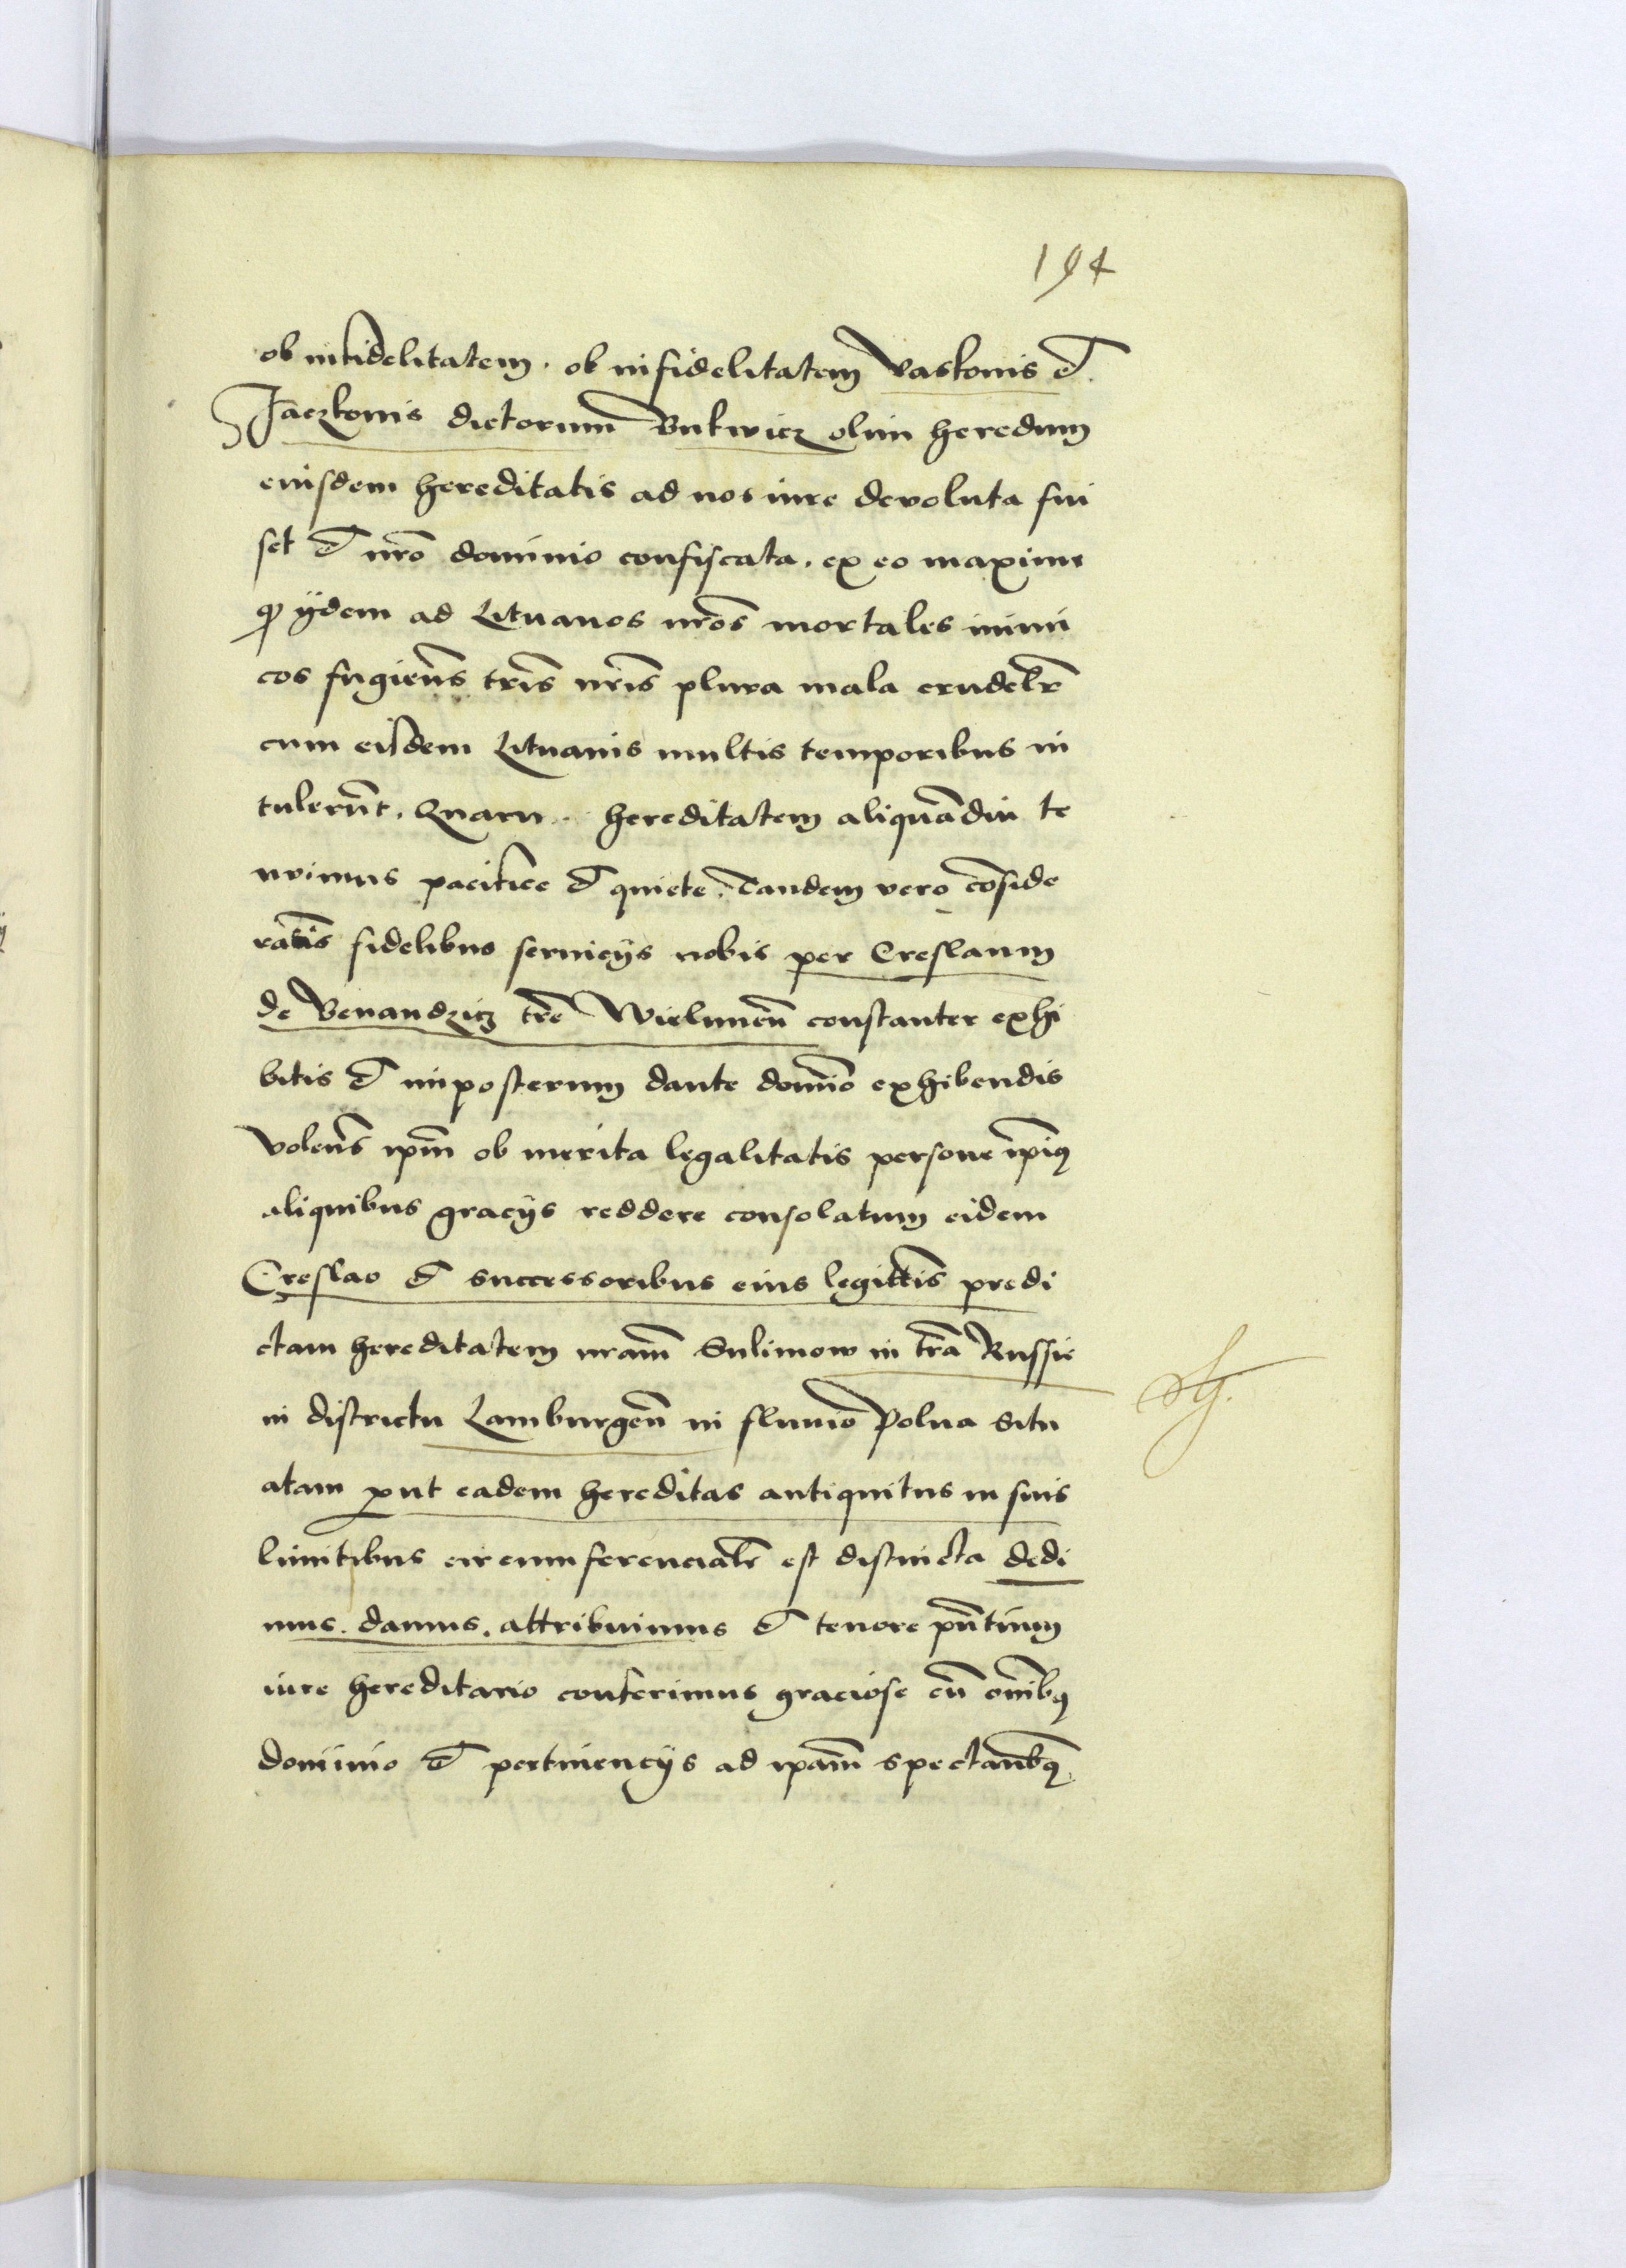 194
ob infidelitatem. ob infidelitatem Vaskonis et
Jaczkonis dictorum Butwicz olim heredum
eiusdem hereditatis ad nos iure devoluta fui
set et nr̄o dominio confiscata. ex eo maxime
ꝙ ijdem ad Lituanos nr̄os mortales inimi
cos fugien̄s tr̄is nr̄is plura mala crudelr̄
cum eisdem Lituanis multis temporibus in
tulerūt. Quam hereditatem aliquādiu te
nuimus pacifice et quiete. Tandem vero cōside
ratis fidelibus servicijs nobis per Creslaum
de Venandzicz tr̄e Wielunen̄ constanter exhi
bitis et imposterum dante domīo exhibendis
volen̄s ip̄m ob merita legalitatis persone ip̄ius
aliquibus gracijs reddere consolatum eidem
Creslao et successoribus eius legittīs predi
ctam hereditatem nr̄am Sulimow in tr̄a Russie
in districtu Lamburgen̄ in fluuio Polua situ
atam ꝓut eadem hereditas antiquitus in suis
limitibus circumferencialr̄ est distincta dedi
mus. damus. attribuimus et tenore pn̄tium
iure hereditario conferimus graciose cū om̄ibꝫ
dominio et pertinencijs ad ip̄am spectantibꝫ